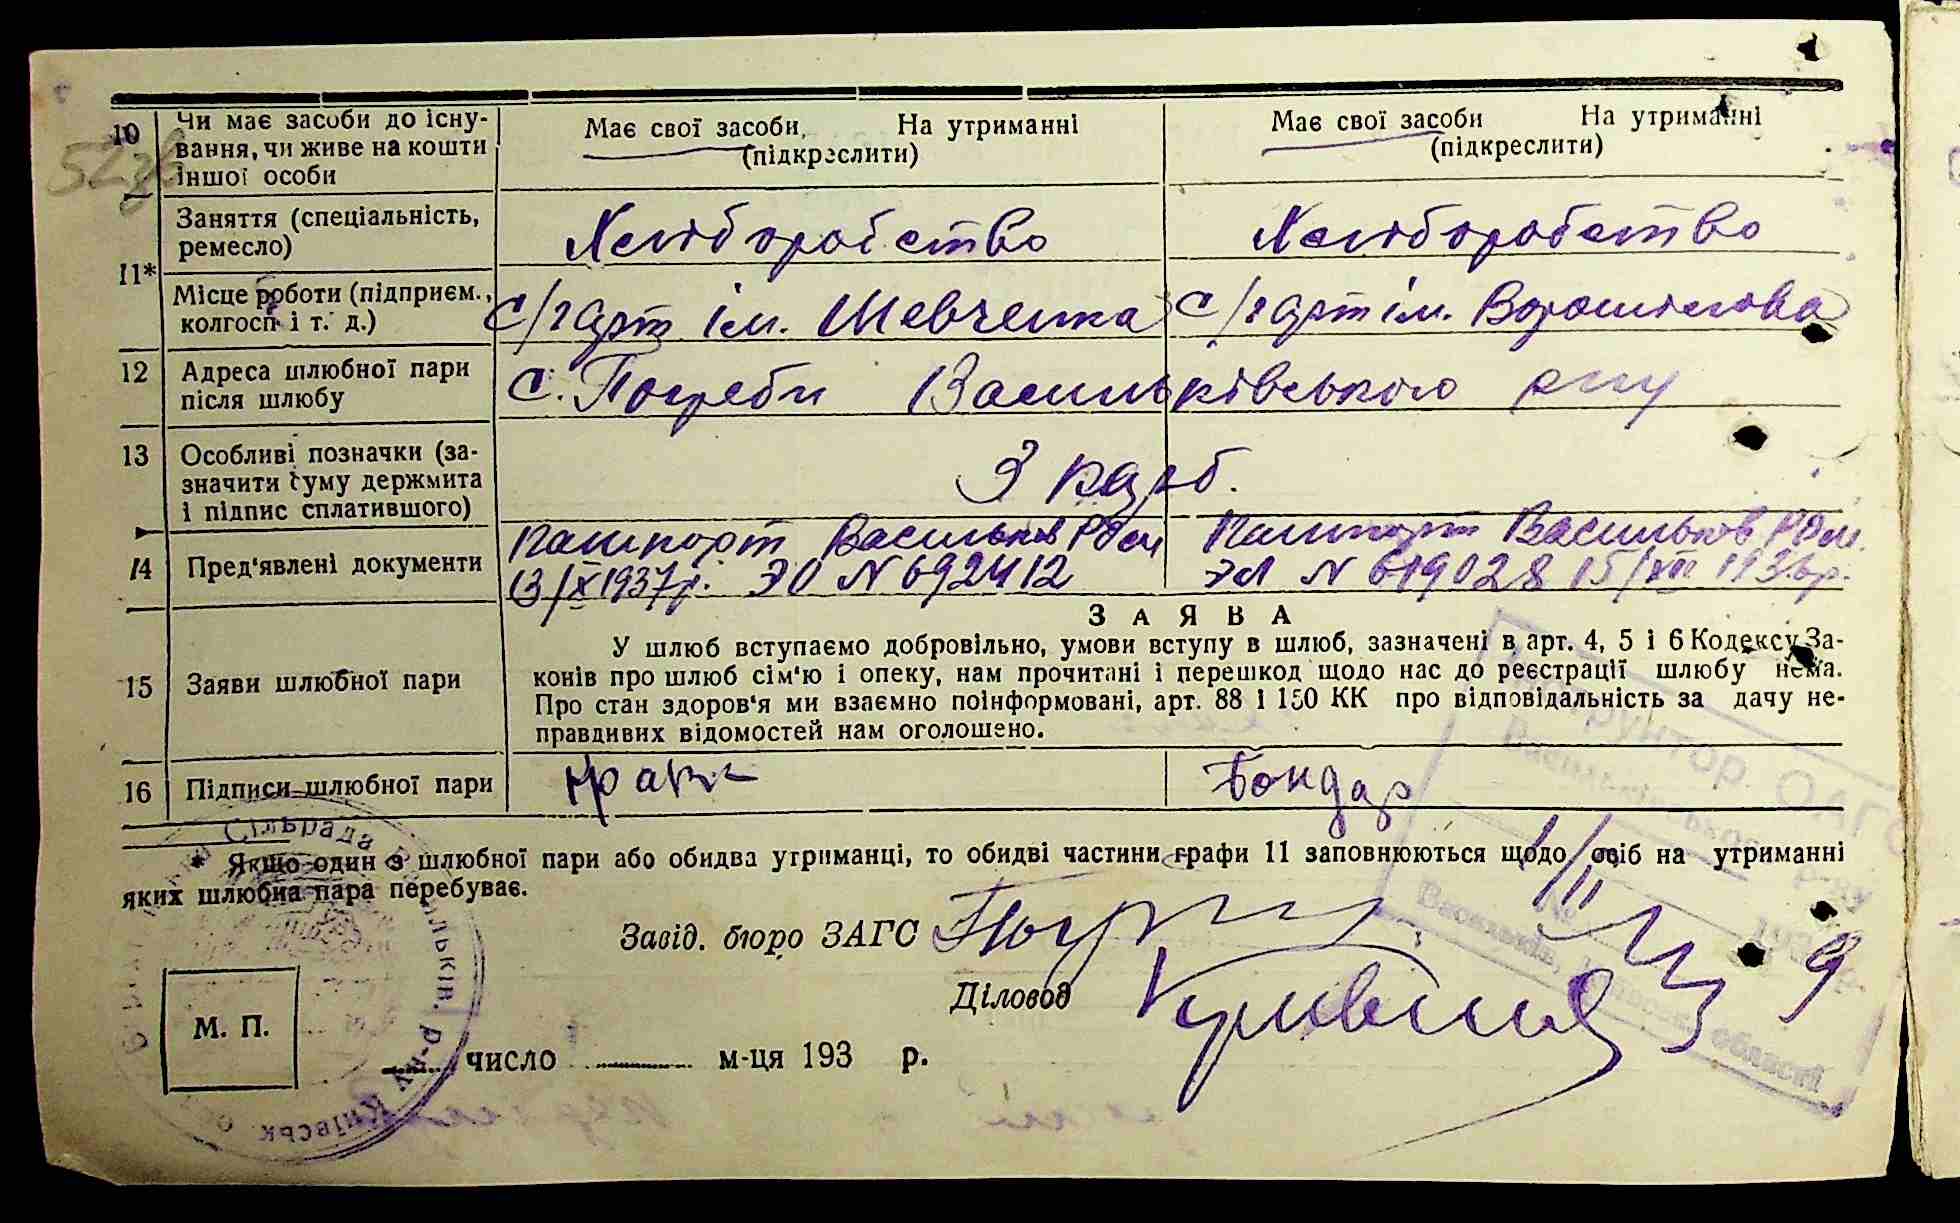 10 Чи має засоби до існу-
вання, чи живе на кошти
іншої особи
Має свої засоби, На утриманні
(підкреслити)
Має свої засоби На утриманні
(підкреслити)
11*
Заняття (спеціальність,
ремесло)
Хліборобство
Хліборобство
Місце роботи (підприєм.,
колгосп і т. д.)
С/г арт ім. Шевченка
С/г арт ім. Ворошилова
12 Адреса шлюбної пари
після шлюбу
с. Погреби Васильківського р-ну
13 Особливі позначки (за-
значити суму держмита
і підпис сплатившого)
3 карб.
14 Пред'явлені документи
Пашпорт Васильков РВМ
13/X 1937р. ЭО N 692412
Пашпорт Васильков РВМ.
N 619028 15/XII
15 Заяви шлюбної пари
ЗАЯВА
У шлюб вступаємо добровільно, умови вступу в шлюб, зазначені в арт. 4, 5 і 6 Кодексу За-
конів про шлюб сім'ю і опеку, нам прочитані і перешкод щодо нас до реєстрації шлюбу нема.
Про стан здоров'я ми взаємно поінформовані, арт. 88 і 150 КК про відповідальність за дачу не-
правдивих відомостей нам оголошено.
16 Підписи шлюбної пари
Бондар
* Якщо один з шлюбної пари або обидва утриманці, то обидві частини графи 11 заповнюються щодо осіб на утриманні
яких шлюбна пара перебуває.
Завід. бюро ЗАГС
Діловод
М. П.
число м-ця 193 р.
Сільрада Васильків. р-ну Київськ.
Інструктор ОАГС
Васильківського р-ну
області